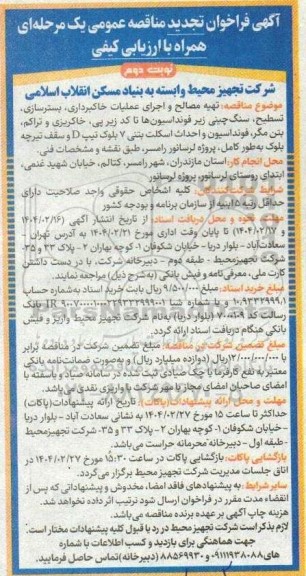 آگهی فراخوان تجدید مناقصه عمومی یک مرحله‌ای
همراه با ارزیابی کیفی
نوبت دوم
شرکت تجهیز محیط وابسته به بنیاد مسکن انقلاب اسلامی
موضوع مناقصه: تهیه مصالح و اجرای عملیات خاکبرداری، بسترسازی،
تسطیح، سنگ چینی زیر فونداسیون‌ها تا کد زیر پی، خاکریزی و تراکم،
بتن مگر، فونداسیون و احداث اسکلت بتنی ۷ بلوک تیپ D و سقف تیرچه
بلوک به‌طور کامل، پروژه لرسانور رامسر، طبق نقشه و مشخصات فنی.
محل انجام کار: استان مازندران، شهر رامسر، کتالم، خیابان شهید غنمی،
ابتدای روستای لرسانور، پروژه لرسانور
شرایط شرکت‌کنندگان: کلیه اشخاص حقوقی واجد صلاحیت دارای
حداقل رتبه ۵ ابنیه از سازمان برنامه و بودجه کشور
مهلت، نحوه و محل دریافت اسناد: از تاریخ انتشار آگهی (۱۴۰۴/۰۲/۱۶
و ۱۴۰۴/۰۲/۱۷) تا پایان وقت اداری مورخ ۱۴۰۴/۰۲/۲۱ به آدرس تهران -
سعادت‌آباد - بلوار دریا - خیابان شکوفان ۱- کوچه بهاران ۲ - پلاک ۳۳ و ۳۵-
شرکت تجهیزمحیط - طبقه دوم - دبیرخانه شرکت، با در دست داشتن
کارت ملی، معرفی‌نامه و فیش بانکی (به‌شرح ذیل) مراجعه نمایند.
مبلغ خرید اسناد: مبلغ ۹/۵۰۰/۰۰۰ ریال بابت خرید اسناد به‌شماره حساب
و با شماره شبا بانک
رسالت کد ۷۰۰۱۰۹ (بلوار دریا) به‌نام شرکت تجهیز محیط واریز و فیش
بانکی هنگام دریافت اسناد ارائه گردد.
مبلغ تضمین شرکت در مناقصه: مبلغ تضمین شرکت در مناقصه برابر
با ۱۲/۰۰۰/۰۰۰/۰۰۰ ریال (دوازده میلیارد ریال) و به‌صورت ضمانت‌نامه بانکی
معتبر به نفع کارفرما یا چک صیادی ثبت شده در سامانه صیاد و به‌سته با
امضای صاحبان امضای مجاز با مهر شرکت یا واریزی نقدی می‌باشد.
مهلت و محل ارائه پیشنهادات (پاکات): تاریخ ارائه پیشنهادات (پاکات)
حداکثر تا ساعت ۱۵ مورخ ۱۴۰۴/۰۲/۲۷ به نشانی سعادت آباد - بلوار دریا
- خیابان شکوفان ۱- کوچه بهاران ۲ - پلاک ۳۳ و ۳۵- شرکت تجهیزمحیط
- طبقه اول - دبیرخانه محرمانه حراست می‌باشد.
بازگشایی پاکات: بازگشایی پاکات در ساعت ۱۵:۳۰ مورخ ۱۴۰۴/۰۲/۲۷ در
اتاق جلسات مدیریت شرکت تجهیز محیط برگزار می‌گردد.
سایر شرایط: به پیشنهادهای فاقد امضا، مخدوش و پیشنهاداتی که پس از
انقضاء مدت مقرر در فراخوان ارسال شود ترتیب اثر داده نخواهد شد.
هزینه چاپ آگهی بر عهده برنده مناقصه می‌باشد.
لازم بذکر است شرکت تجهیز محیط در رد یا قبول کلیه پیشنهادات مختار است.
جهت هماهنگی برای بازدید و کسب اطلاعات با شماره
های ۰۹۱۱۱۹۳۸۰۸۸ و ۸۸۵۶۹۹۳۰ (دبیرخانه) تماس حاصل فرمایید.